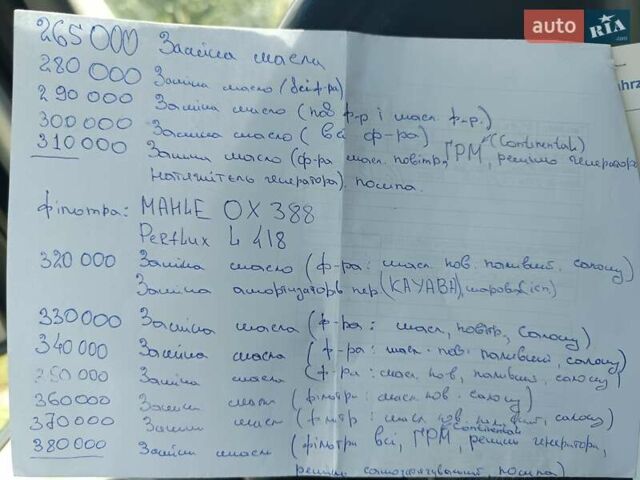 auto RIA.com
265000 Заміна масли
280 000 Заміна масло (всі ф-ра)
290 000 Заміна масло (пов ф-р і масл ф-р.)
300000 Заміна масло (всі ф-ра)
(Continental)
310000 Заміна масло (ф-ра масл. повітр, ГРМ, реміню генератора
натяжитель генератора), помпа.
фільтра: MAHLE OX 388
Perflux L 418
320 000 Заміна масло (ф-ра: масл. пов. паливний, салону)
Заміна амортизаторів пер (KAYABA),
330000 Заміна масла (ф-ра: масл, повітр, салону)
340 000 Заміна масла (ф-ра: масл. пов. паливний, салону)
350 000 Заміна масла (ф-ра: масл. пов, паливний, салону)
360000 Заміни масл (фільтри: масл пов. салону)
370 000 Заміни масл (фільтр: масл. пов. салону)
Continental
380 000 Заміни масли (фільтри всі, ГРМ, реміню генератора,
реміню помпа)